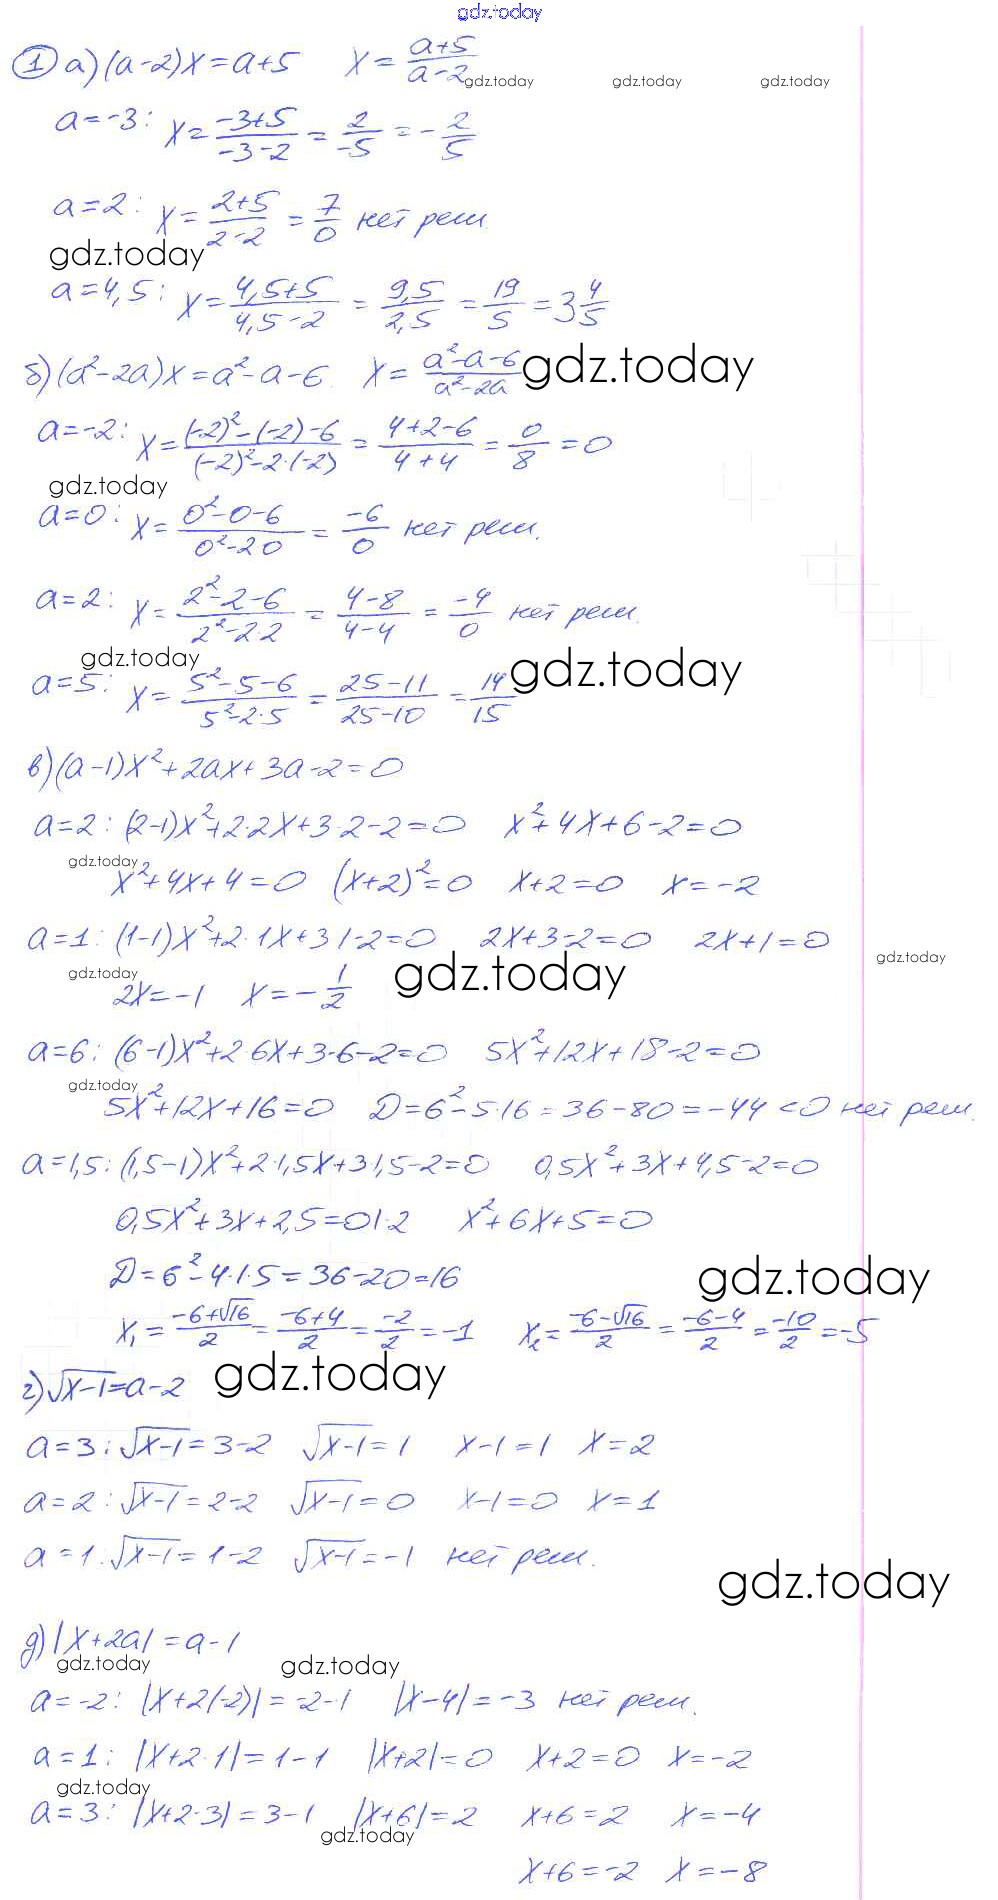 gdz.today
① а) (a-2)x=a+5 x=\frac{a+5}{a-2}
gdz.today gdz.today gdz.today
a=-3: x=\frac{-3+5}{-3-2}=\frac{2}{-5}=-\frac{2}{5}
a=2: x=\frac{2+5}{2-2}=\frac{7}{0} нет реш.
gdz.today
a=4,5: x=\frac{4,5+5}{4,5-2}=\frac{9,5}{2,5}=\frac{19}{5}=3\frac{4}{5}
б) (a²-2a)x=a²-a-6. x=\frac{a²-a-6}{a²-2a} gdz.today
a=-2: x=\frac{(-2)²-(-2)-6}{(-2)²-2·(-2)}=\frac{4+2-6}{4+4}=\frac{0}{8}=0
gdz.today
a=0: x=\frac{0²-0-6}{0²-2·0}=\frac{-6}{0} нет реш.
a=2: x=\frac{2²-2-6}{2²-2·2}=\frac{4-8}{4-4}=\frac{-4}{0} нет реш.
gdz.today gdz.today
a=5: x=\frac{5²-5-6}{5²-2·5}=\frac{25-11}{25-10}=\frac{14}{15}
в) (a-1)x²+2ax+3a-2=0
a=2: (2-1)x²+2·2x+3·2-2=0 x²+4x+6-2=0
gdz.today
x²+4x+4=0 (x+2)²=0 x+2=0 x=-2
a=1: (1-1)x²+2·1x+3·1-2=0 2x+3-2=0 2x+1=0
gdz.today gdz.today gdz.today
2x=-1 x=-\frac{1}{2}
a=6: (6-1)x²+2·6x+3·6-2=0 5x²+12x+18-2=0
gdz.today
5x²+12x+16=0 Д=6²-5·16=36-80=-44<0 нет реш.
a=1,5: (1,5-1)x²+2·1,5x+3·1,5-2=0 0,5x²+3x+4,5-2=0
0,5x²+3x+2,5=0|·2 x²+6x+5=0
Д=6²-4·1·5=36-20=16 gdz.today
x₁=\frac{-6+√16}{2}=\frac{-6+4}{2}=\frac{-2}{2}=-1 x₂=\frac{-6-√16}{2}=\frac{-6-4}{2}=\frac{-10}{2}=-5
г) √(x-1)=a-2 gdz.today
a=3: √(x-1)=3-2 √(x-1)=1 x-1=1 x=2
a=2: √(x-1)=2-2 √(x-1)=0 x-1=0 x=1
a=1: √(x-1)=1-2 √(x-1)=-1 нет реш.
gdz.today
д) |x+2a|=a-1
gdz.today gdz.today
a=-2: |x+2(-2)|=-2-1 |x-4|=-3 нет реш.
a=1: |x+2·1|=1-1 |x+2|=0 x+2=0 x=-2
gdz.today
a=3: |x+2·3|=3-1 |x+6|=2 x+6=2 x=-4
gdz.today
x+6=-2 x=-8